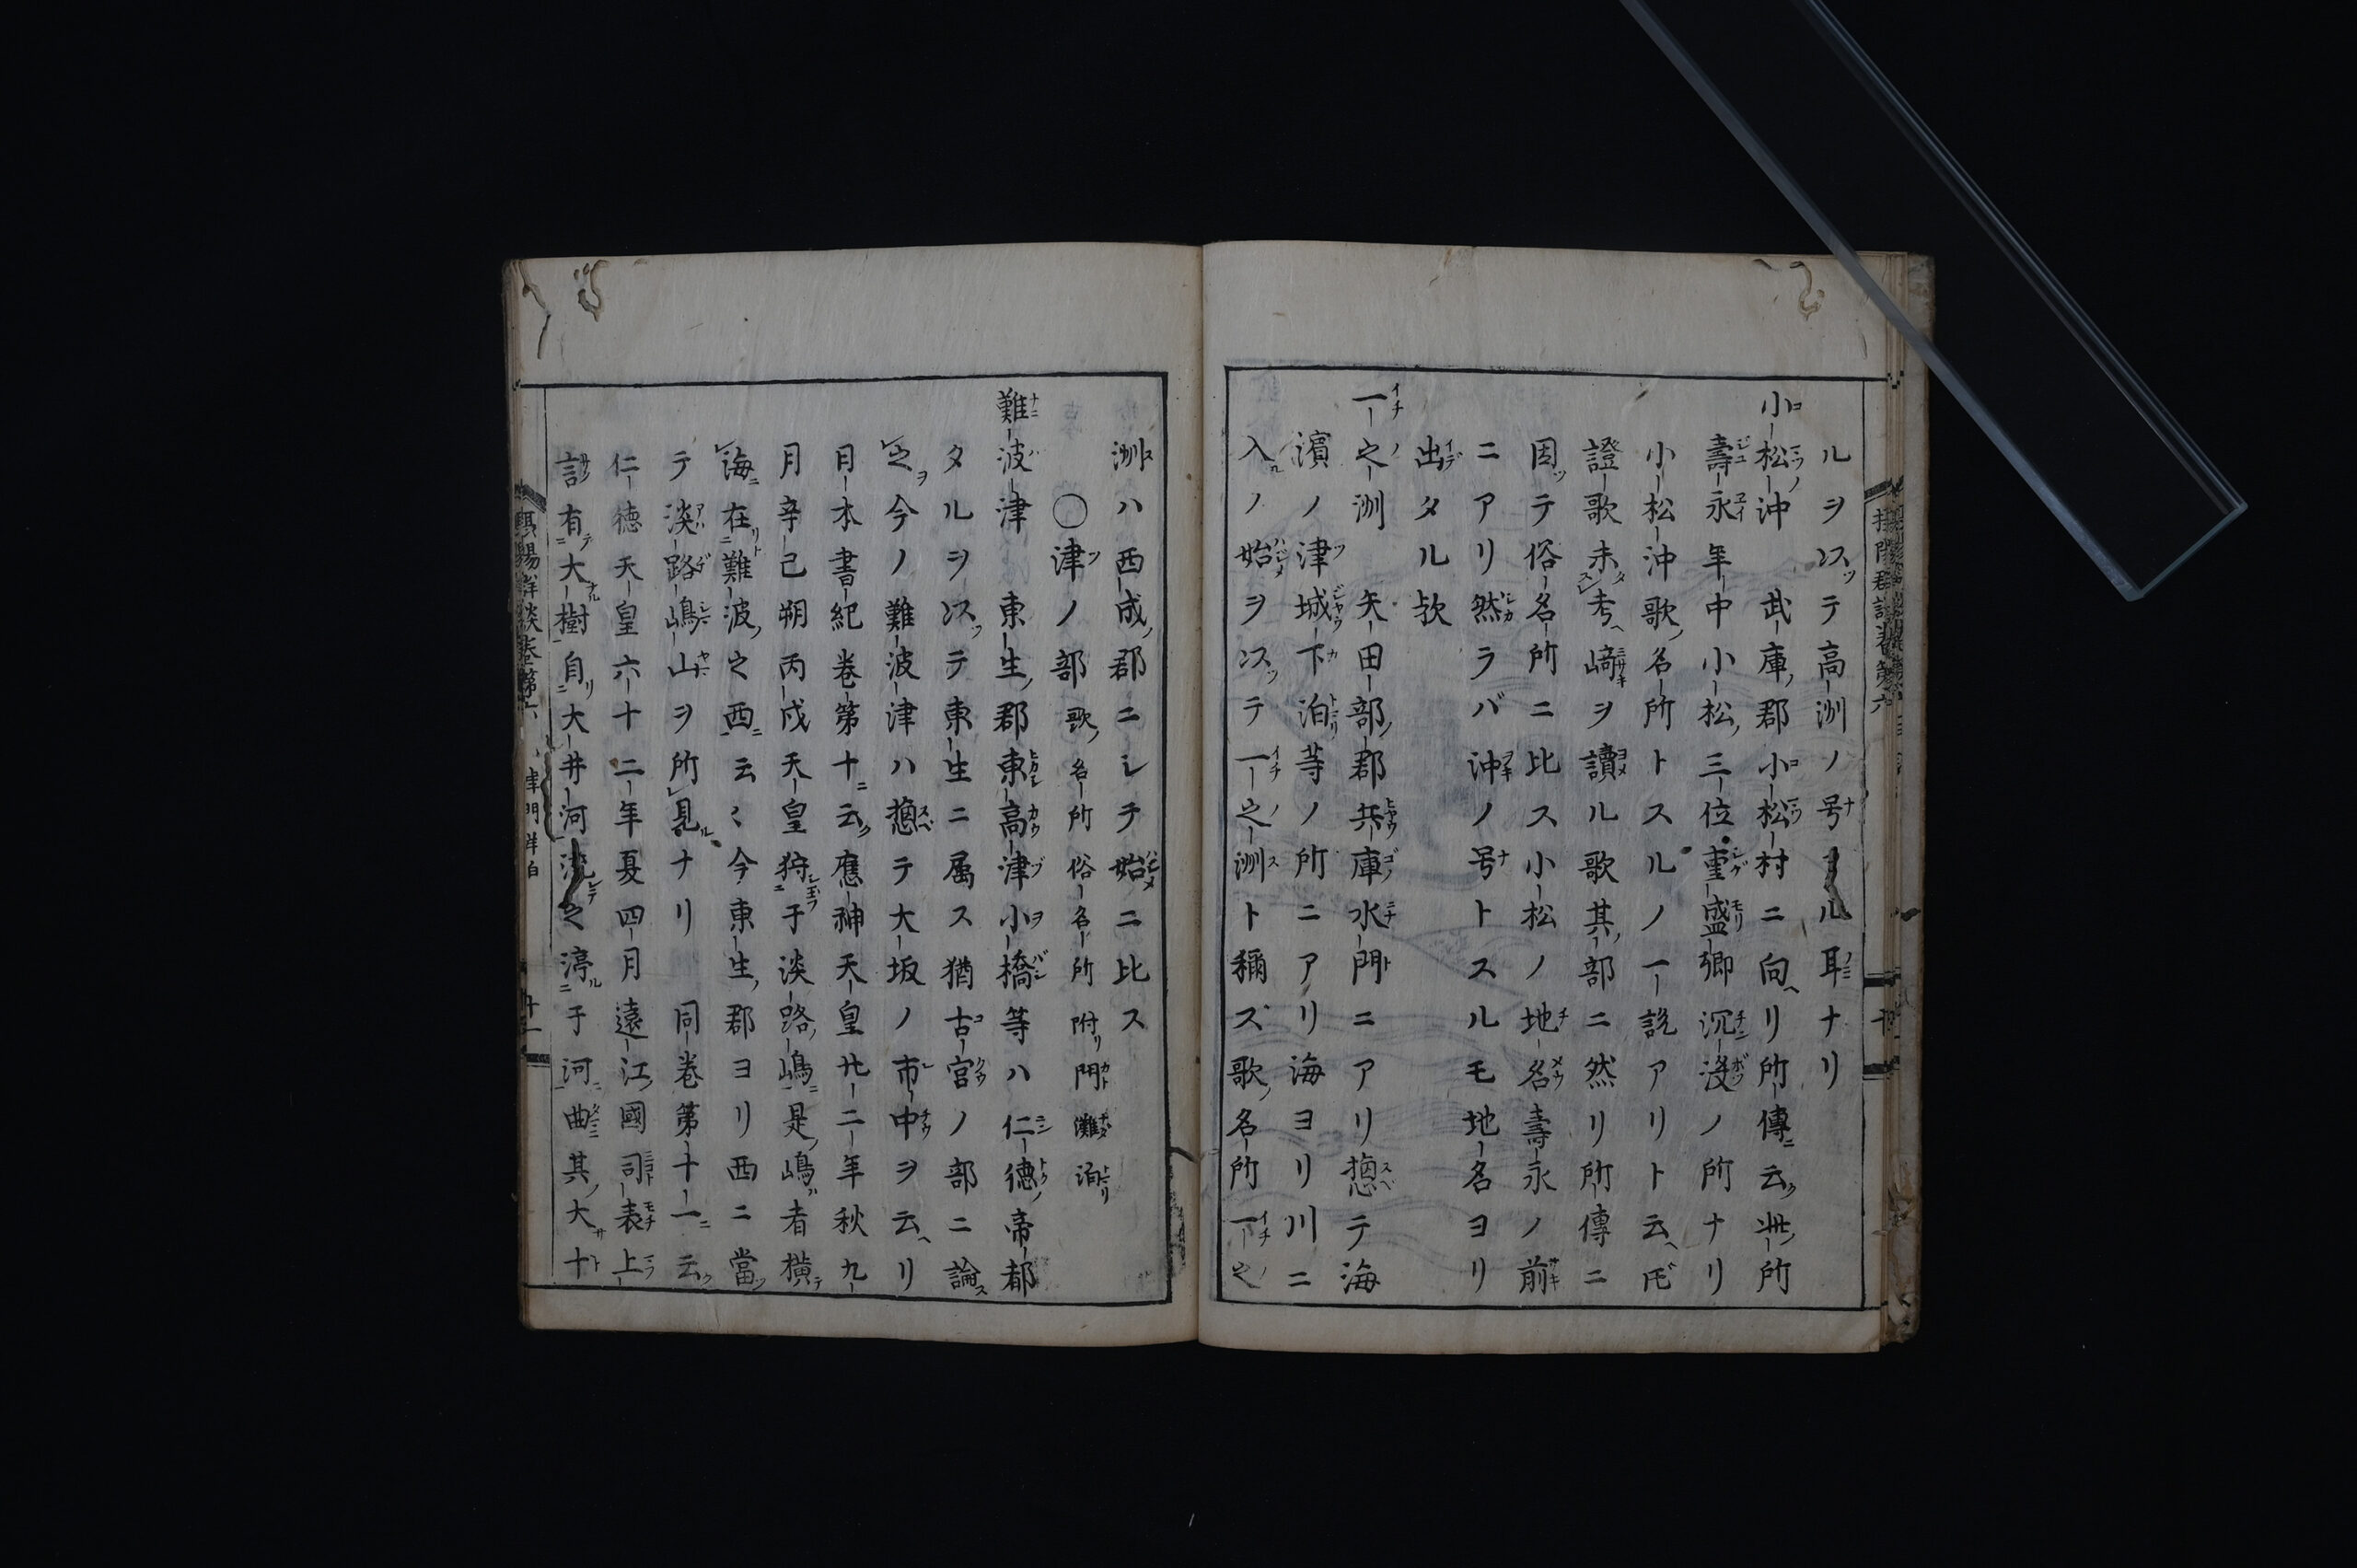 ルヲ以テ高洲ノ号アル耳ナリ
小松沖　武庫郡小松村ニ向ヘリ所傳云此所
壽永年中小松三位重盛卿沉没ノ所ナリ
小松沖歌名所トスルノ一説アリト云ヘ𪜈
證歌未考﨑ヲ讀ル歌其部ニ然リ所傳ニ
因テ俗名所ニ比ス小松ノ地名壽永ノ前
ニアリ然ラバ沖ノ号トスルモ地名ヨリ
出タル歟
一之洲　矢田部郡兵庫水門ニアリ惣テ海
濱ノ津城下泊等ノ所ニアリ海ヨリ川ニ
入ノ始ヲ以テ一之洲ト稱ズ歌名所一之
洲ハ西成郡ニシテ始ニ比ス
〇津ノ部　歌名所　俗名所　附リ門　灘　泊
難波津　東生郡東高津小橋等ハ仁德帝都
タルヲ以テ東生ニ属ス猶古宮ノ部ニ論ス
之今ノ難波津ハ惣テ大坂ノ市中ヲ云ヘリ
日本書紀巻第十云應神天皇廿二年秋九
月辛巳朔丙戌天皇狩于淡路嶋是嶋者横
海在難波之西云〻今東生郡ヨリ西ニ當
テ淡路嶋山ヲ所見ナリ　同巻第十一云
仁徳天皇六十二年夏四月遠江國司表上
言有大樹自大井河流之渟于河曲其大十
攝陽群談巻第六